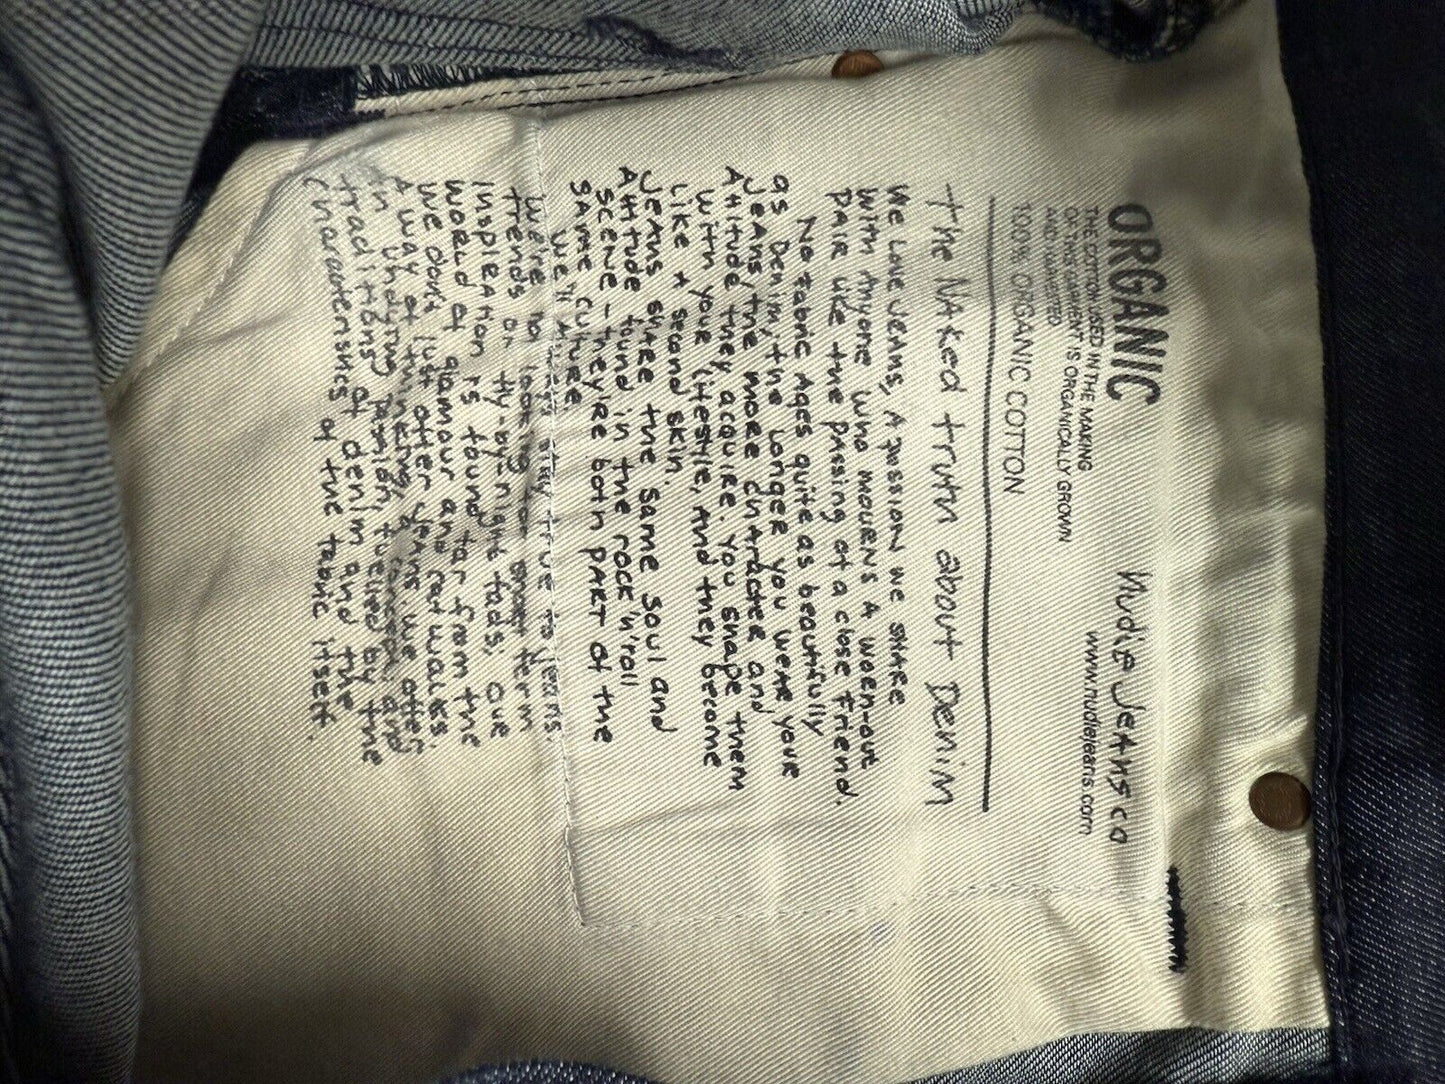 ORGANIC
THE COTTON USED IN THE MAKING
OF THIS GARMENT IS ORGANICALLY GROWN
AND
100% ORGANIC COTTON
Nudie Jeans co
www.nudiejeans.com
The Naked truth about Denim
We Love Jeans, A passion we share
with Anyone who mourns A worn-out
pair like the passing of a close friend.
No fabric Ages quite as beautifully
as Denim, the longer you wear your
Jeans, the more character and
Attitude they acquire. You shape them
with your lifestyle, And they become
Like A second skin.
Jeans share the same soul and
Attitude found in the rock'n'roll
scene - they're both part of the
same culture.
We'll always stay true to jeans.
We're no long term
trends or fly-by-night fads, our
inspiration is found far from the
world of glamour and catwalks.
We don't lust after jeans we offer
A way of thinking, a and
an undying passion, fueled by the
traditions of denim and the
characteristics of the fabric itself.